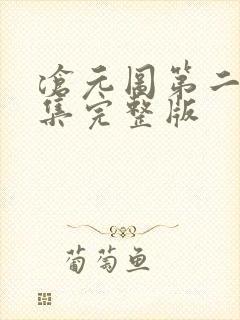 滄元圖第二
集完整版
葡萄鱼